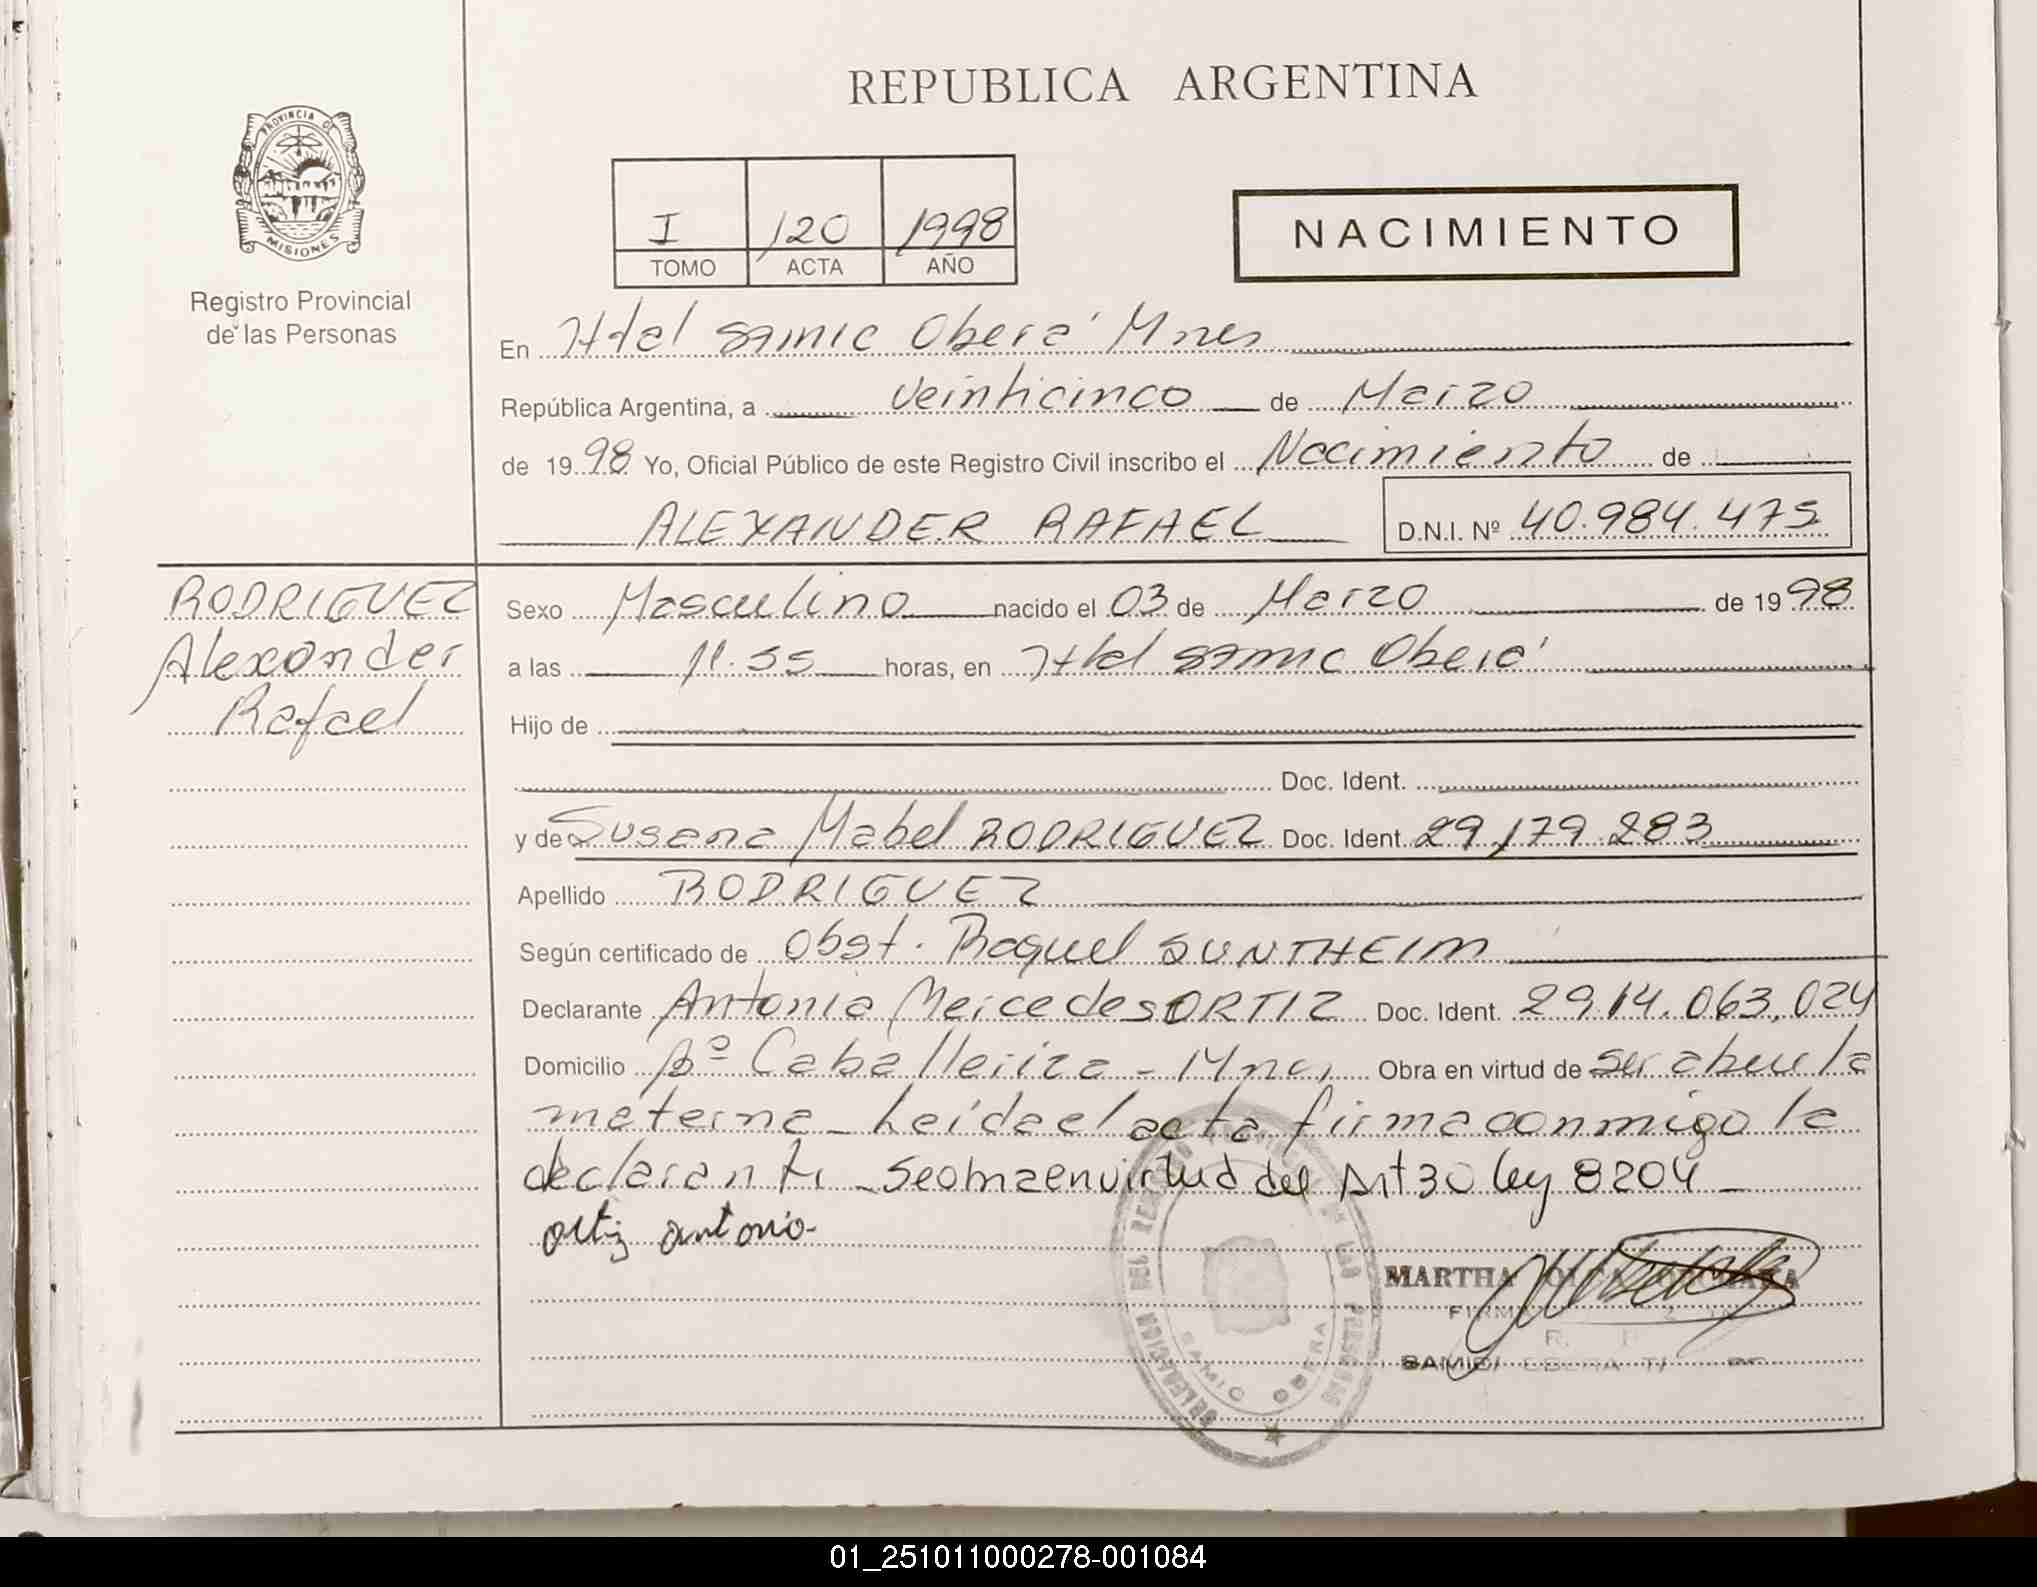 REPUBLICA ARGENTINA
PROVINCIA DE
MISIONES
Registro Provincial
de las Personas
I 120 1998
TOMO ACTA AÑO
NACIMIENTO
En Htal SAMIC Oberá Mnes
República Argentina, a veinticinco de Marzo
de 1998 Yo, Oficial Público de este Registro Civil inscribo el Nacimiento de
ALEXANDER RAFAEL D.N.I. Nº 40.984.475
RODRIGUEZ
Alexander
Rafael
Sexo Masculino nacido el 03 de Marzo de 1998
a las 11.55 horas, en Htal SAMIC Oberá
Hijo de
Doc. Ident.
y de Susana Mabel RODRIGUEZ Doc. Ident. 29.179.283
Apellido RODRIGUEZ
Según certificado de Obst. Raquel SUNTHEIM
Declarante Antonia Mercedes ORTIZ Doc. Ident. 14.063.024
Domicilio Bº Caballeriza - Mnes Obra en virtud de ser abuela
materna - Leída el acta firma conmigo la
declarante - Se obra en virtud del Art 30 ley 8204 -
Ortiz Antonia
MARTHA OLGA
SAMIC OBERA
DELEGACION DEL REGISTRO DE LAS PERSONAS
SAMIC OBERA
01_251011000278-001084